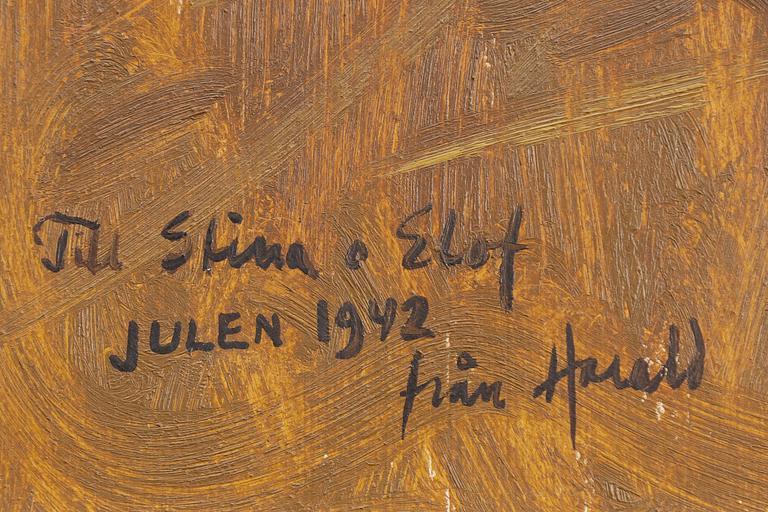 Till Stina o Elof
JULEN 1942
från Harald